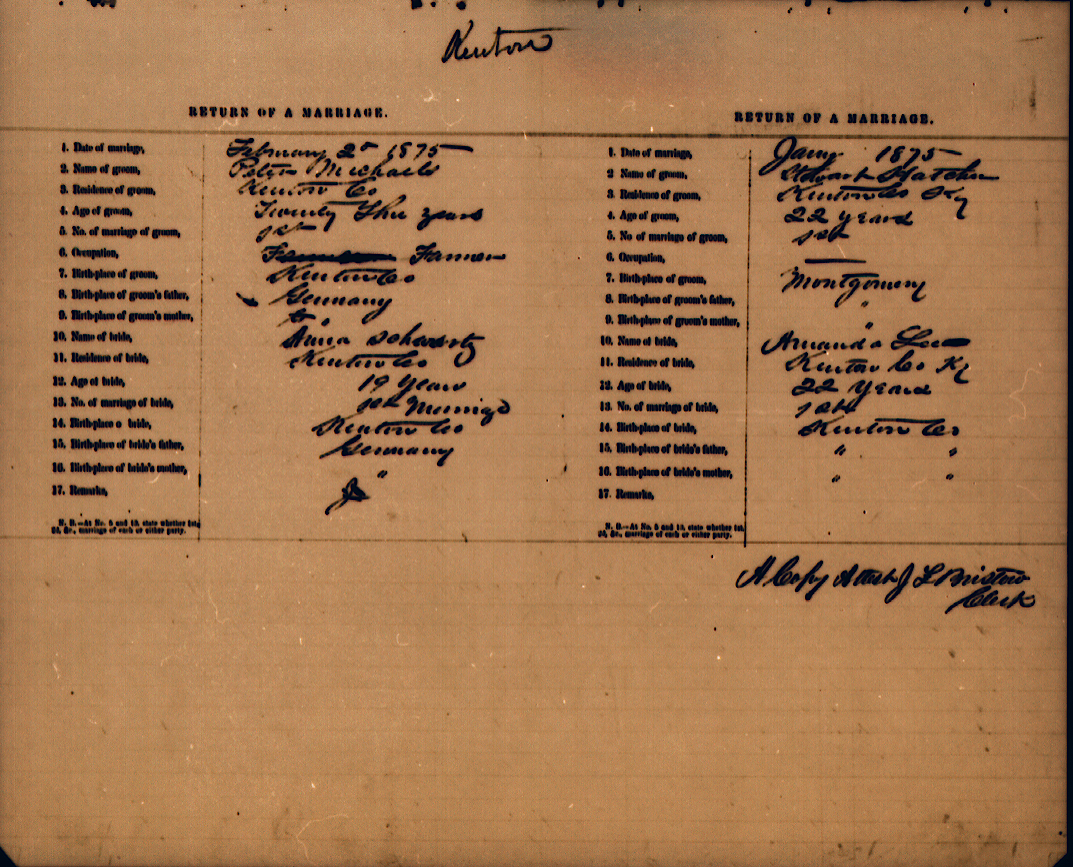 Kenton
RETURN OF A MARRIAGE.
1. Date of marriage, February 2d 1875
2. Name of groom, Peter Michaels
3. Residence of groom, Kenton Co
4. Age of groom, Twenty Three years
5. No. of marriage of groom, 1st
6. Occupation, Farmer
7. Birth-place of groom, Kenton Co
8. Birth-place of groom's father, Germany
9. Birth-place of groom's mother, "
10. Name of bride, Anna Schwartz
11. Residence of bride, Kenton Co
12. Age of bride, 19 Years
13. No. of marriage of bride, 1st
14. Birth-place o bride, Kenton Co
15. Birth-place of bride's father, Germany
16. Birth-place of bride's mother, "
17. Remarks,
N. B.—At No. 5 and 13, state whether 1st,
2d, &c., marriage of each or either party.
RETURN OF A MARRIAGE.
1. Date of marriage, Jany 1875
2 Name of groom, Hatcher
3 Residence of groom, Kenton Co Ky
4. Age of groom, 22 years
5. No of marriage of groom, 1st
6. Occupation, —
7. Birth-place of groom, Montgomery
8 Birth-place of groom's father, "
9. Birth-place of groom's mother, "
10. Name of bride, Amanda
11. Residence of bride, Kenton Co Ky
12. Age of bride, 22 Years
13. No. of marriage of bride, 1st
14. Birth-place of bride, Kenton Co
15. Birth-place of bride's father, " "
16. Birth-place of bride's mother, " "
17. Remarks,
N. B.—At No. 5 and 13, state whether 1st,
2d, &c., marriage of each or either party.
A Copy Attest J L Bristow
Clerk